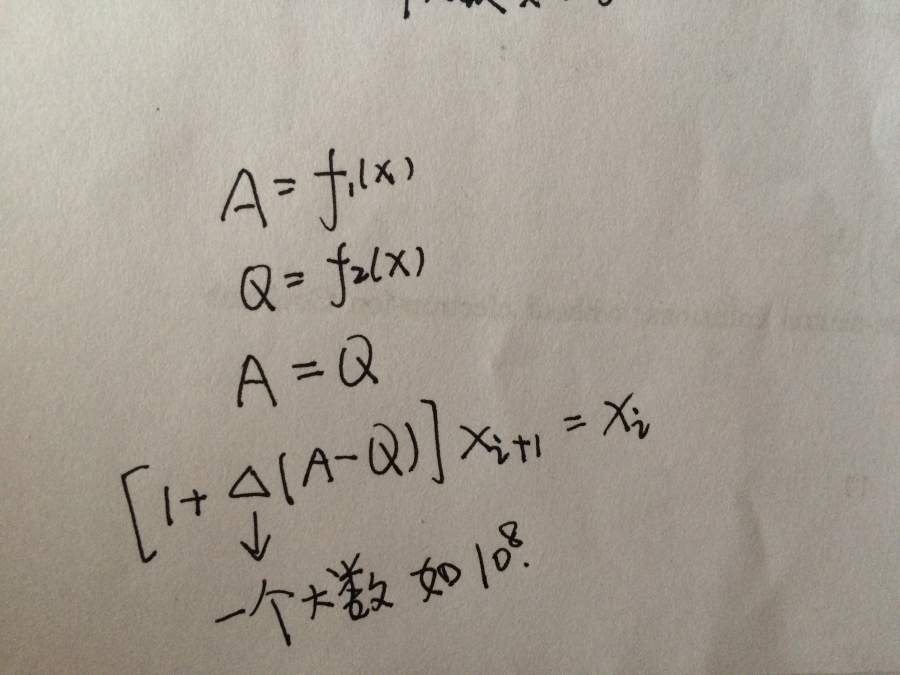 A = f₁(x)
Q = f₂(x)
A = Q
[1 + Δ(A-Q)] xᵢ₊₁ = xᵢ
↓
一个大数 如 10⁸.